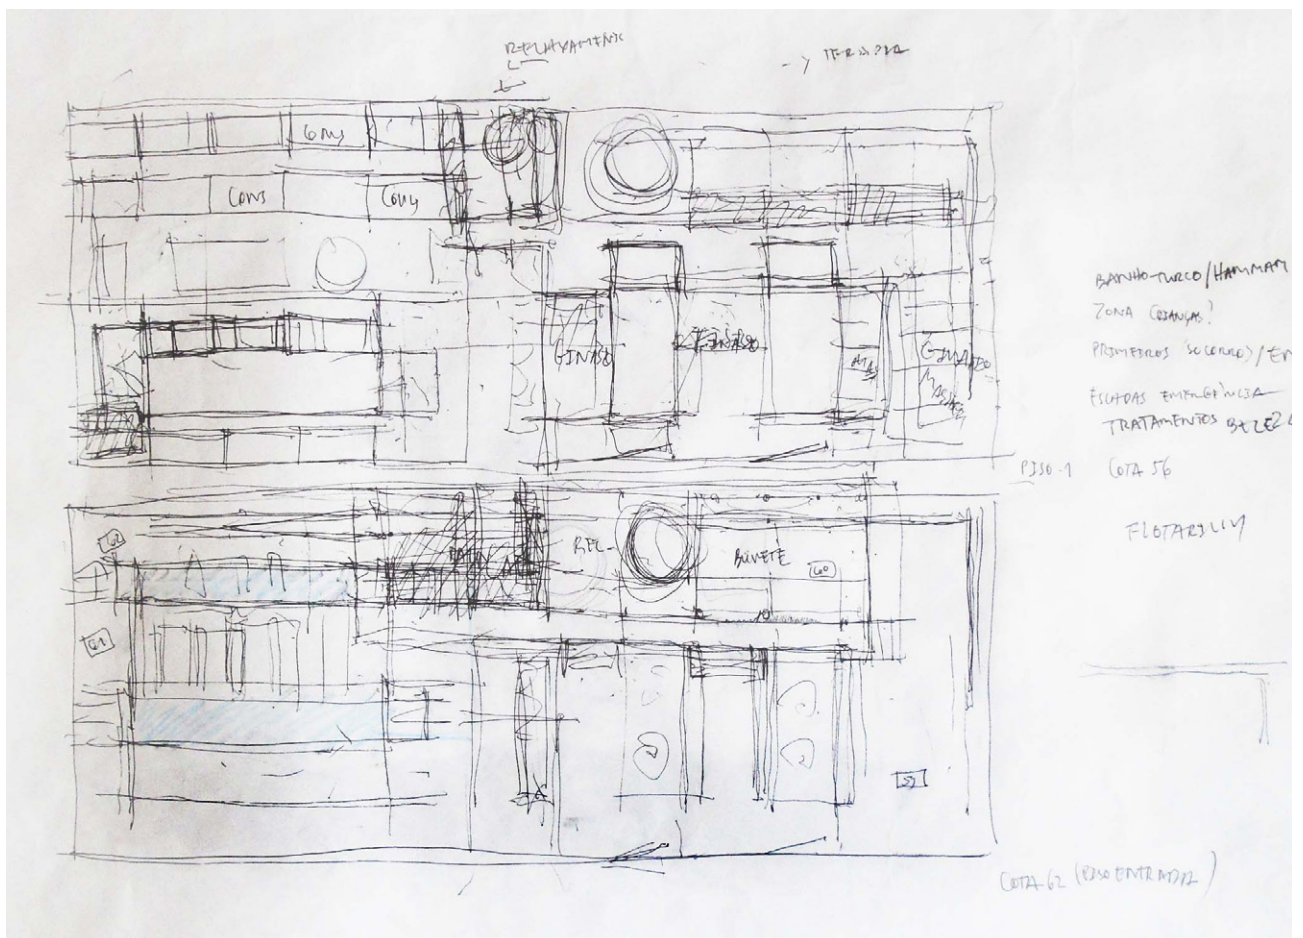 RELAXAMENTO
Cons
Cons
Cons
GINÁSIO
GINÁSIO
GINÁSIO
MASSAG
BANHO-TURCO/HAMMAM
ZONA CRIANÇAS?
PRIMEIROS SOCORROS/EN
ESCADAS EMERGÊNCIA
TRATAMENTOS BELEZA
PISO-1 COTA 56
FLOTARIUM
REC
BUVETE
60
COTA 62 (PISO ENTRADA)